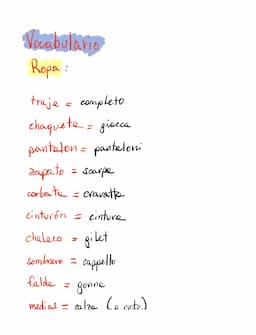 Vocabulario
Ropa :
traje = completo
chaqueta = giacca
pantalon = pantaloni
zapato = scarpe
corbata = cravatta
cinturón = cintura
chaleco = gilet
sombrero = cappello
falda = gonna
medias = calze (o